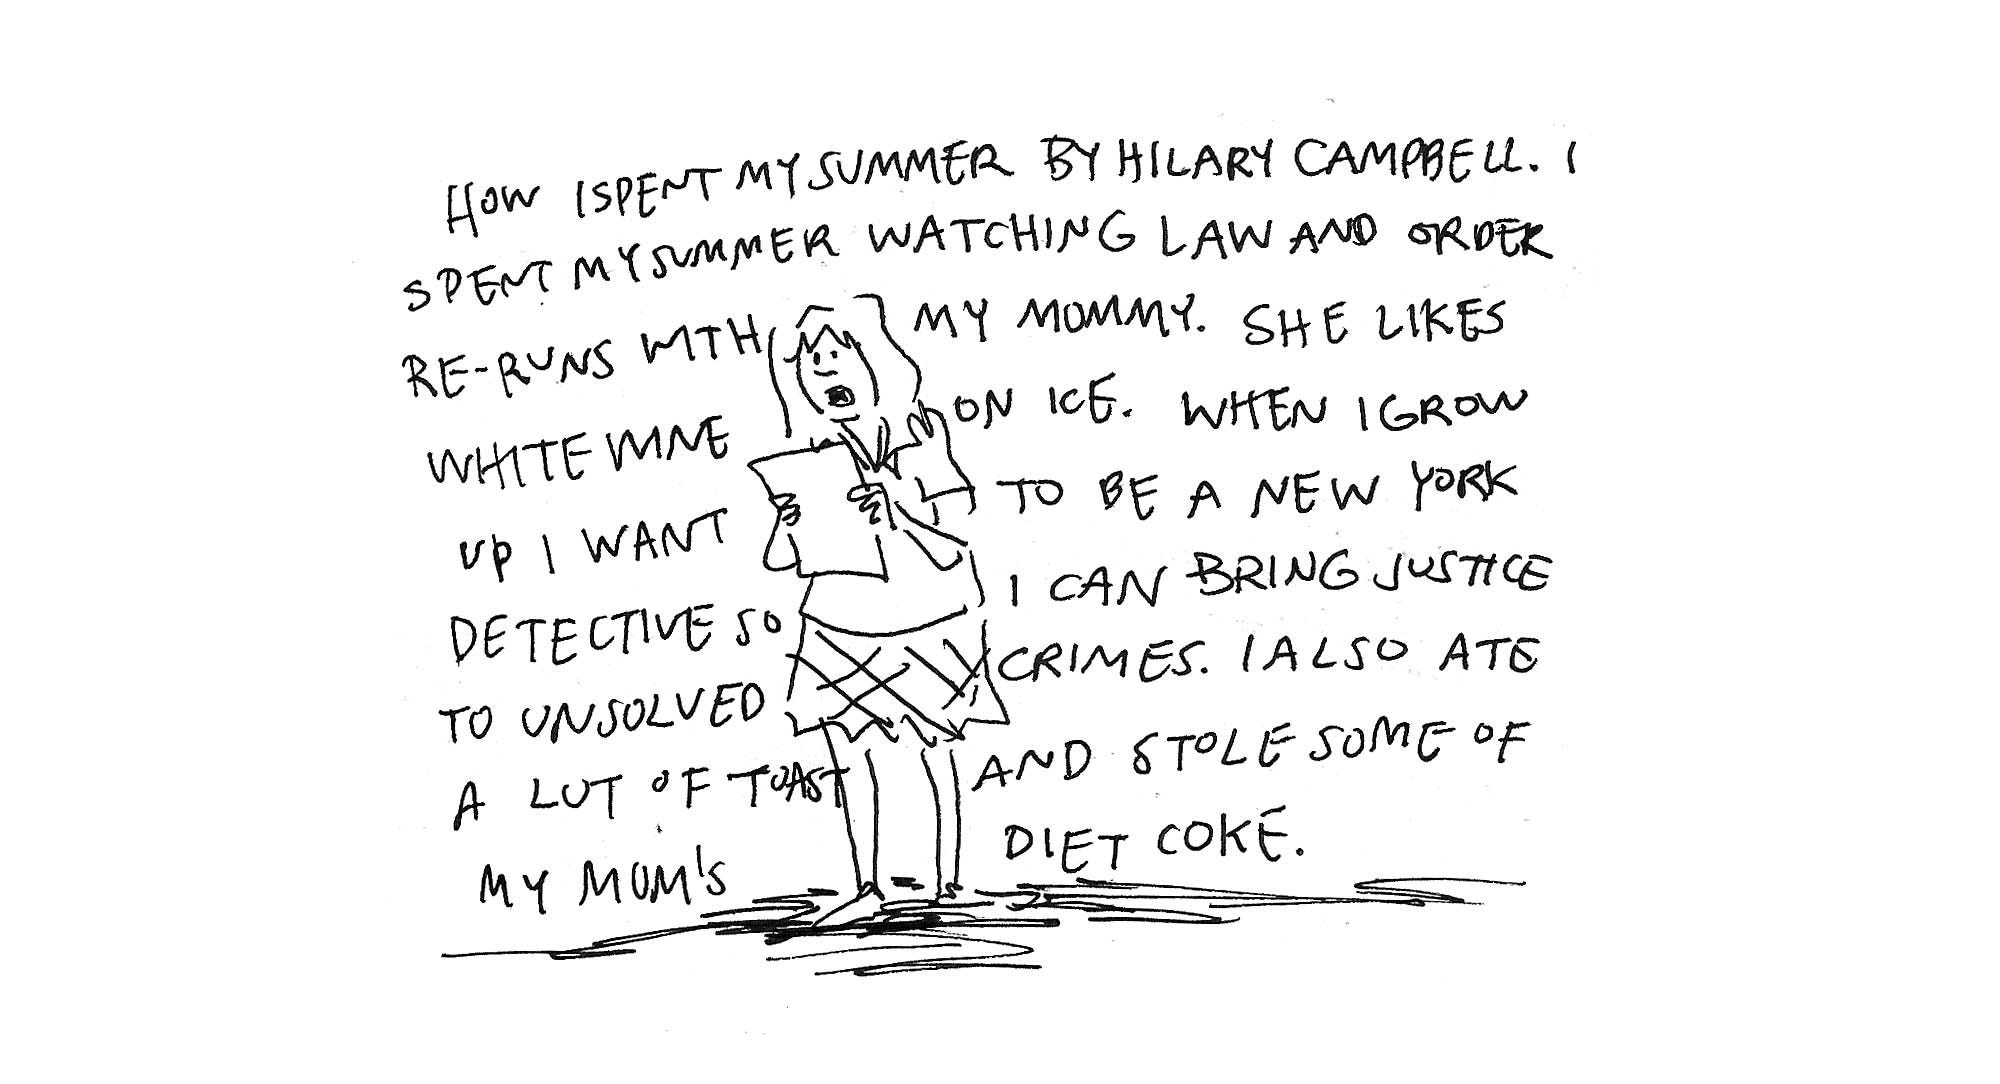 HOW I SPENT MY SUMMER BY HILARY CAMPBELL. I
SPENT MY SUMMER WATCHING LAW AND ORDER
RE-RUNS WITH MY MOMMY. SHE LIKES
WHITE WINE ON ICE. WHEN I GROW
UP I WANT TO BE A NEW YORK
DETECTIVE SO I CAN BRING JUSTICE
TO UNSOLVED CRIMES. I ALSO ATE
A LOT OF TOAST AND STOLE SOME OF
MY MOM'S DIET COKE.